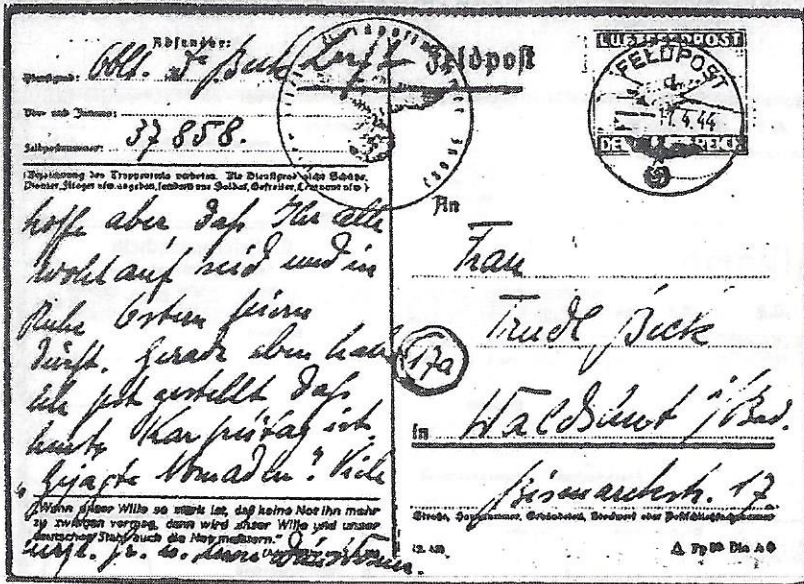 Absender:
Feldpost
Dienstgrad: Oblt. Dr. Beck
Vor- und Zuname:
Feldpostnummer: 37858.
(Bezeichnung des Truppenteils verboten. Als Dienstgrad nicht Schütze,
Pionier, Flieger usw. angeben, sondern nur Soldat, Gefreiter, Leutnant usw.)
hoffe aber daß Ihr alle
wohlauf seid und in
Ruhe Ostern feiern
dürft. Gerade eben habe
ich fest gestellt daß
heute Karfreitag ist.
"Gejagte Nomaden". Viele
„Wenn unser Wille so stark ist, daß keine Not ihn mehr
zu zwingen vermag, dann wird unser Wille und unser
deutscher Stahl auch die Not meistern."
LUFTFELDPOST
FELDPOST
d
11.4.44
DEUTSCHES REICH
An
Frau
Trudl Beck
17a
in Waldshut i/Bad.
Bismarckstr. 17
Straße, Hausnummer, Gebäudeteil, Stockwerk oder Postschließfachnummer